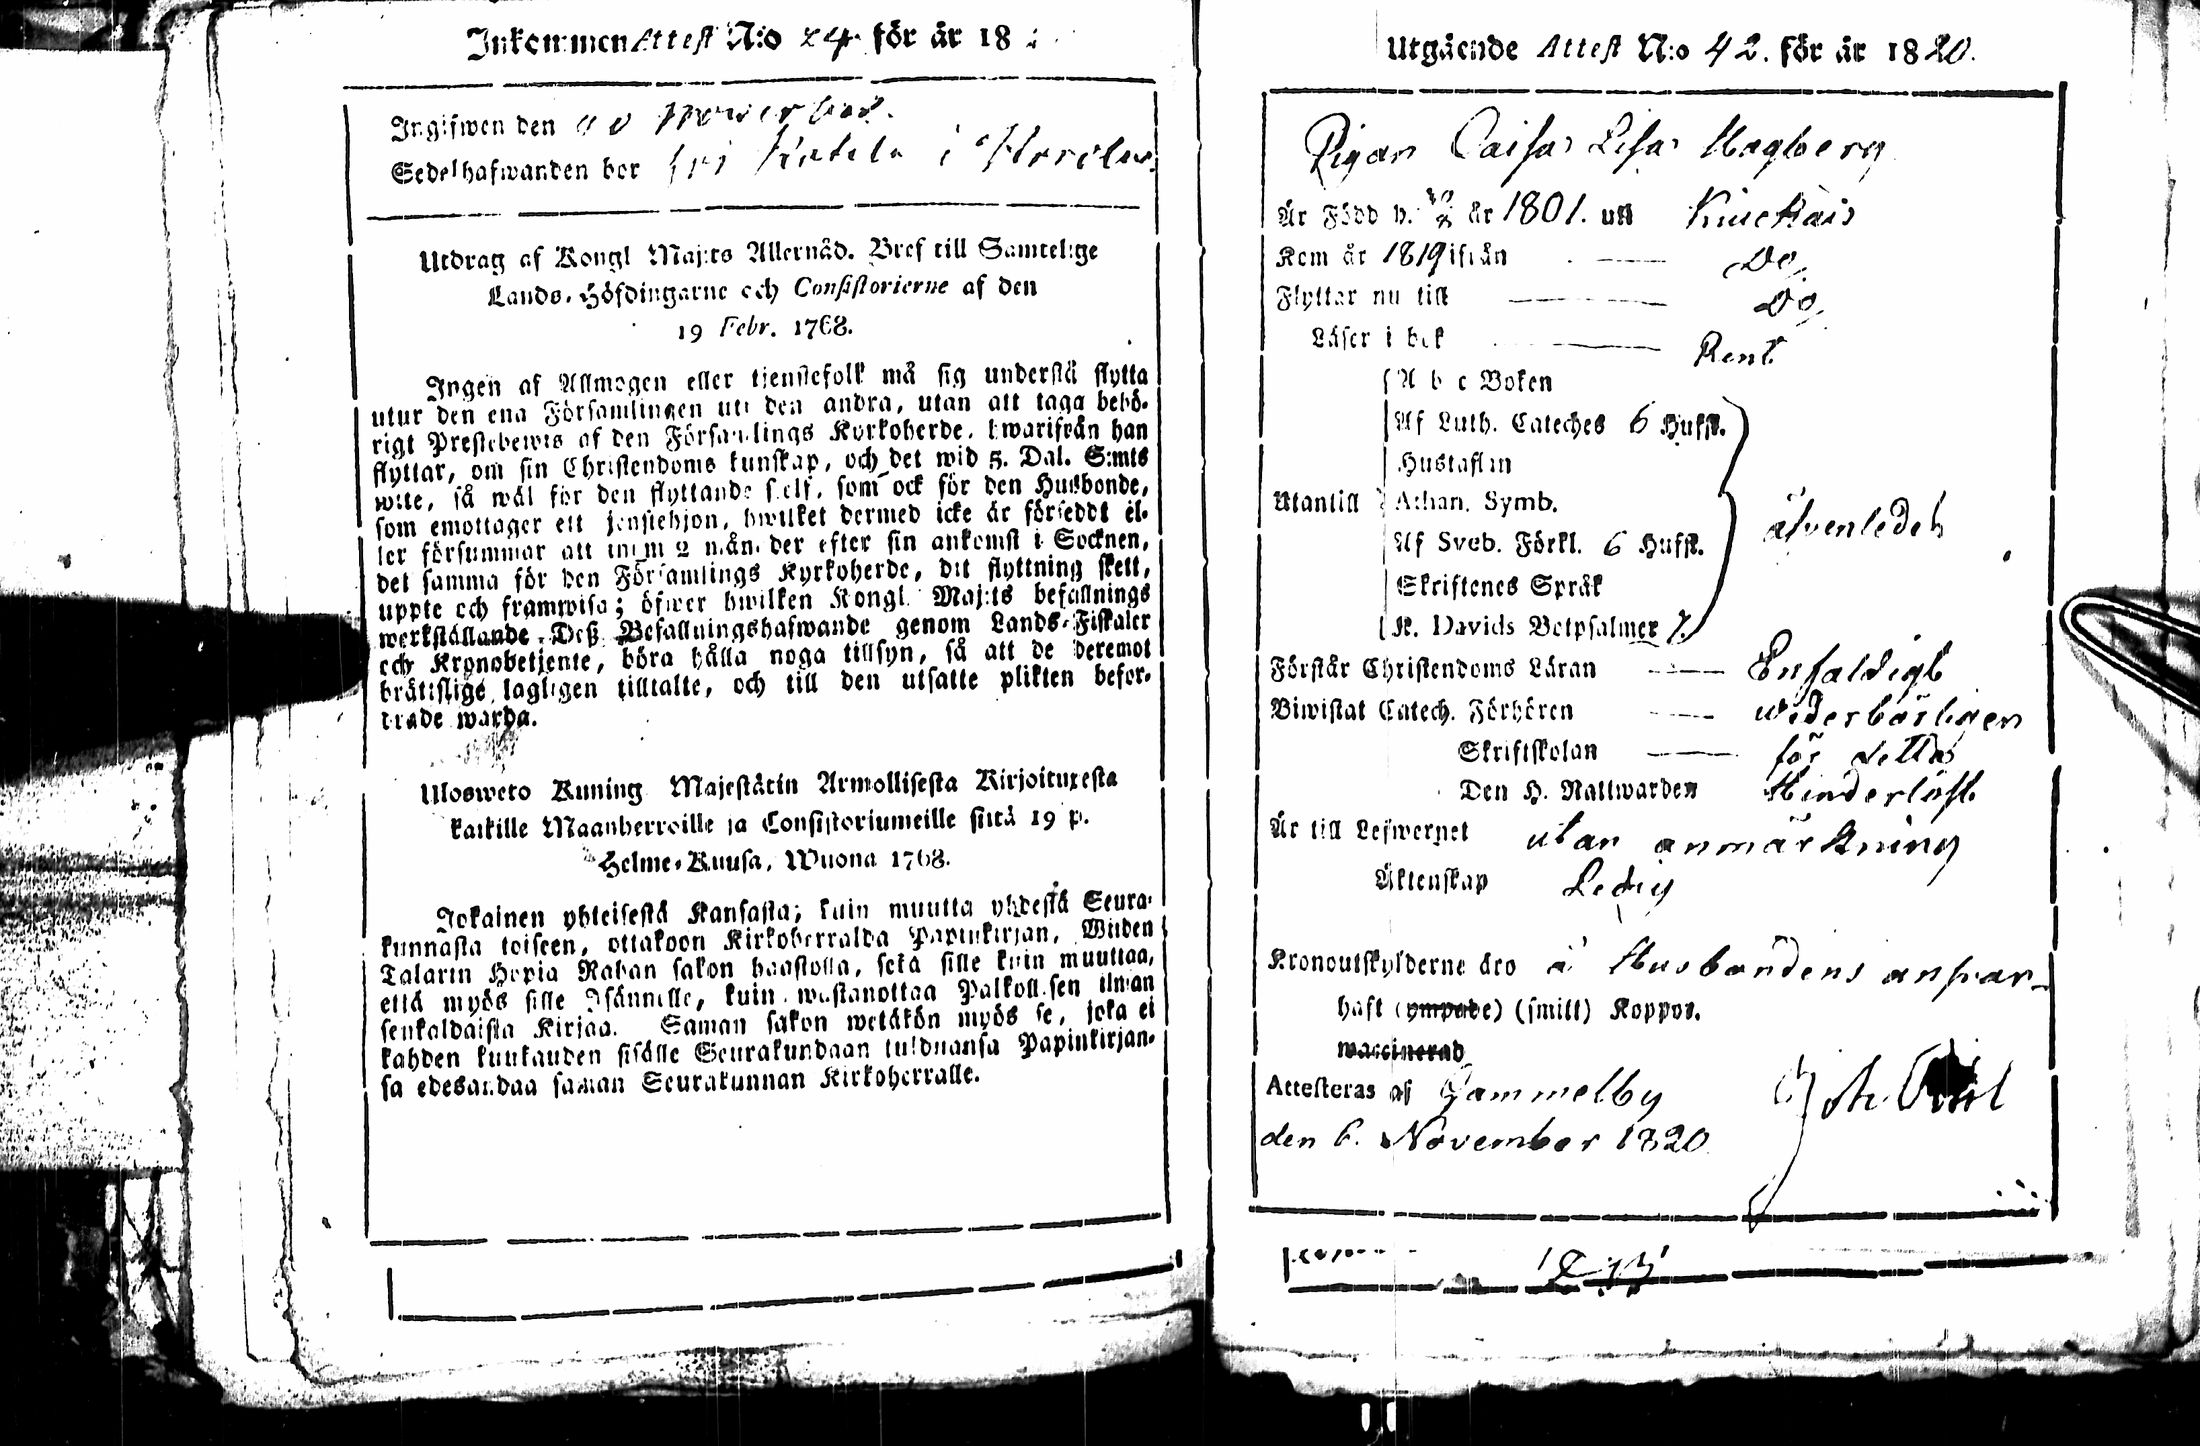 Inkommen Attest N:o 24 för år 18
Ingifwen den November.
Sedelhafwanden bor hos i
Utdrag af Kongl Maj:ts Allernåd. Bref till Samtelige
Lands-Höfdingarne och Consistorierne af den
19 Febr. 1768.
Ingen af Allmogen eller tjenstefolk må sig understå flytta
utur den ena Församlingen uti den andra, utan att taga behö-
rigt Prestebewis af den Församlings Kyrkoherde, hwarifrån han
flyttar, om sin Christendoms kunskap, och det wid 5. Dal. S:mts
wite, så wäl för den flyttande sielf, som ock för den Husbonde,
som emottager ett tjenstehjon, hwilket dermed icke är förseddt el-
ler försummar att inom 2 månader efter sin ankomst i Socknen,
det samma för den Församlings Kyrkoherde, dit flyttning skett,
uppte och framwisa; öfwer hwilken Kongl. Maj:ts befallnings
werkställande Deß Befallningshafwande genom Lands-Fiskaler
och Kronobetjente, böra hålla noga tillsyn, så att de deremot
brätisslige lagligen tilltalte, och till den utsatte plikten befor-
drade warda.
Ulosweto Kuning Majestätin Armollisesta Kirjoituxesta
kaikille Maanherroille ja Consistoriumeille siitä 19 p.
Helme-Kuusa, Wuona 1768.
Jokainen yhteisestä Kansasta; kuin muutta yhdestä Seura-
kunnasta toiseen, ottakoon Kirkoherralda Papinkirjan, Wiiden
Talarin Hopia Rahan sakon haastolla, sekä sille kuin muuttaa,
että myös sille Isännelle, kuin wastanottaa Palkollisen ilman
senkaldaista Kirjaa. Saman sakon wetäkön myös se, joka ei
kahden kuukauden sisälle Seurakundaan tulduansa Papinkirjan-
sa edesandaa saman Seurakunnan Kirkoherralle.
Utgående Attest N:o 42. för år 1820.
Pigan Caisa Lisa Hagberg
Är Född d. år 1801. uti
Kom år 1819 ifrån Do,
Flyttar nu till Do,
Läser i bok Rent
A b c Boken
Af Luth. Cateches 6 Hufst.
Hustaflan
Utantill Athan. Symb. äfvenledes
Af Sveb. Förkl. 6 Hufst.
Skriftenes Språk
K. Davids Botpsalmer 7.
Förstår Christendoms Läran Enfaldigt
Biwistat Catech. Förhören wederbörligen
Skriftskolan för detta
Den H. Nattwarden Hinderlöst
Är till Lefwernet utan anmärkning
Äktenskap Ledig
Kronoutskylderne äro å Husbondens ansvar
haft (ympade) (smitt) Koppor.
waccinerad
Attesteras af Gammelby Joh.
den 6. November 1820